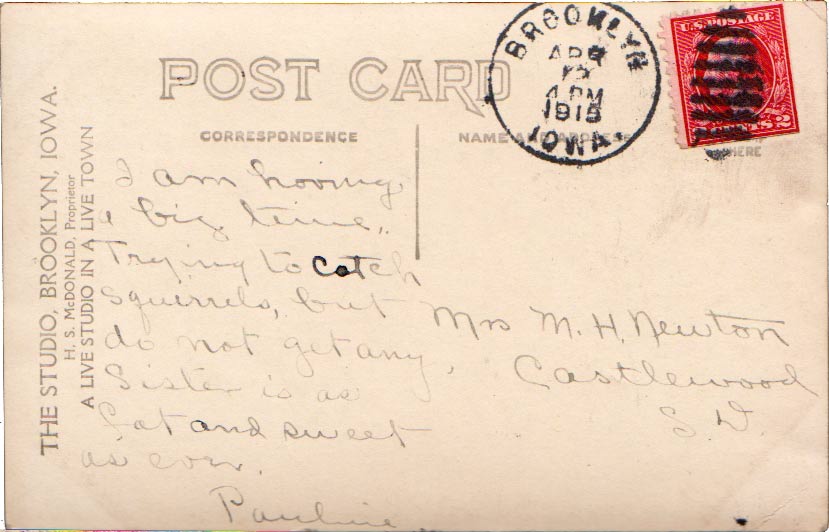 POST CARD
CORRESPONDENCE
NAME AND ADDRESS
HERE
BROOKLYN
APR
4 PM
1915
IOWA.
U.S. POSTAGE
2
THE STUDIO, BROOKLYN, IOWA.
H. S. McDONALD, Proprietor
A LIVE STUDIO IN A LIVE TOWN
I am having
a big time,
Trying to catch
squirrels, but
do not get any.
Sister is as
fat and sweet
as ever.
Pauline
Mrs M. H. Newton
Castlewood
S. D.